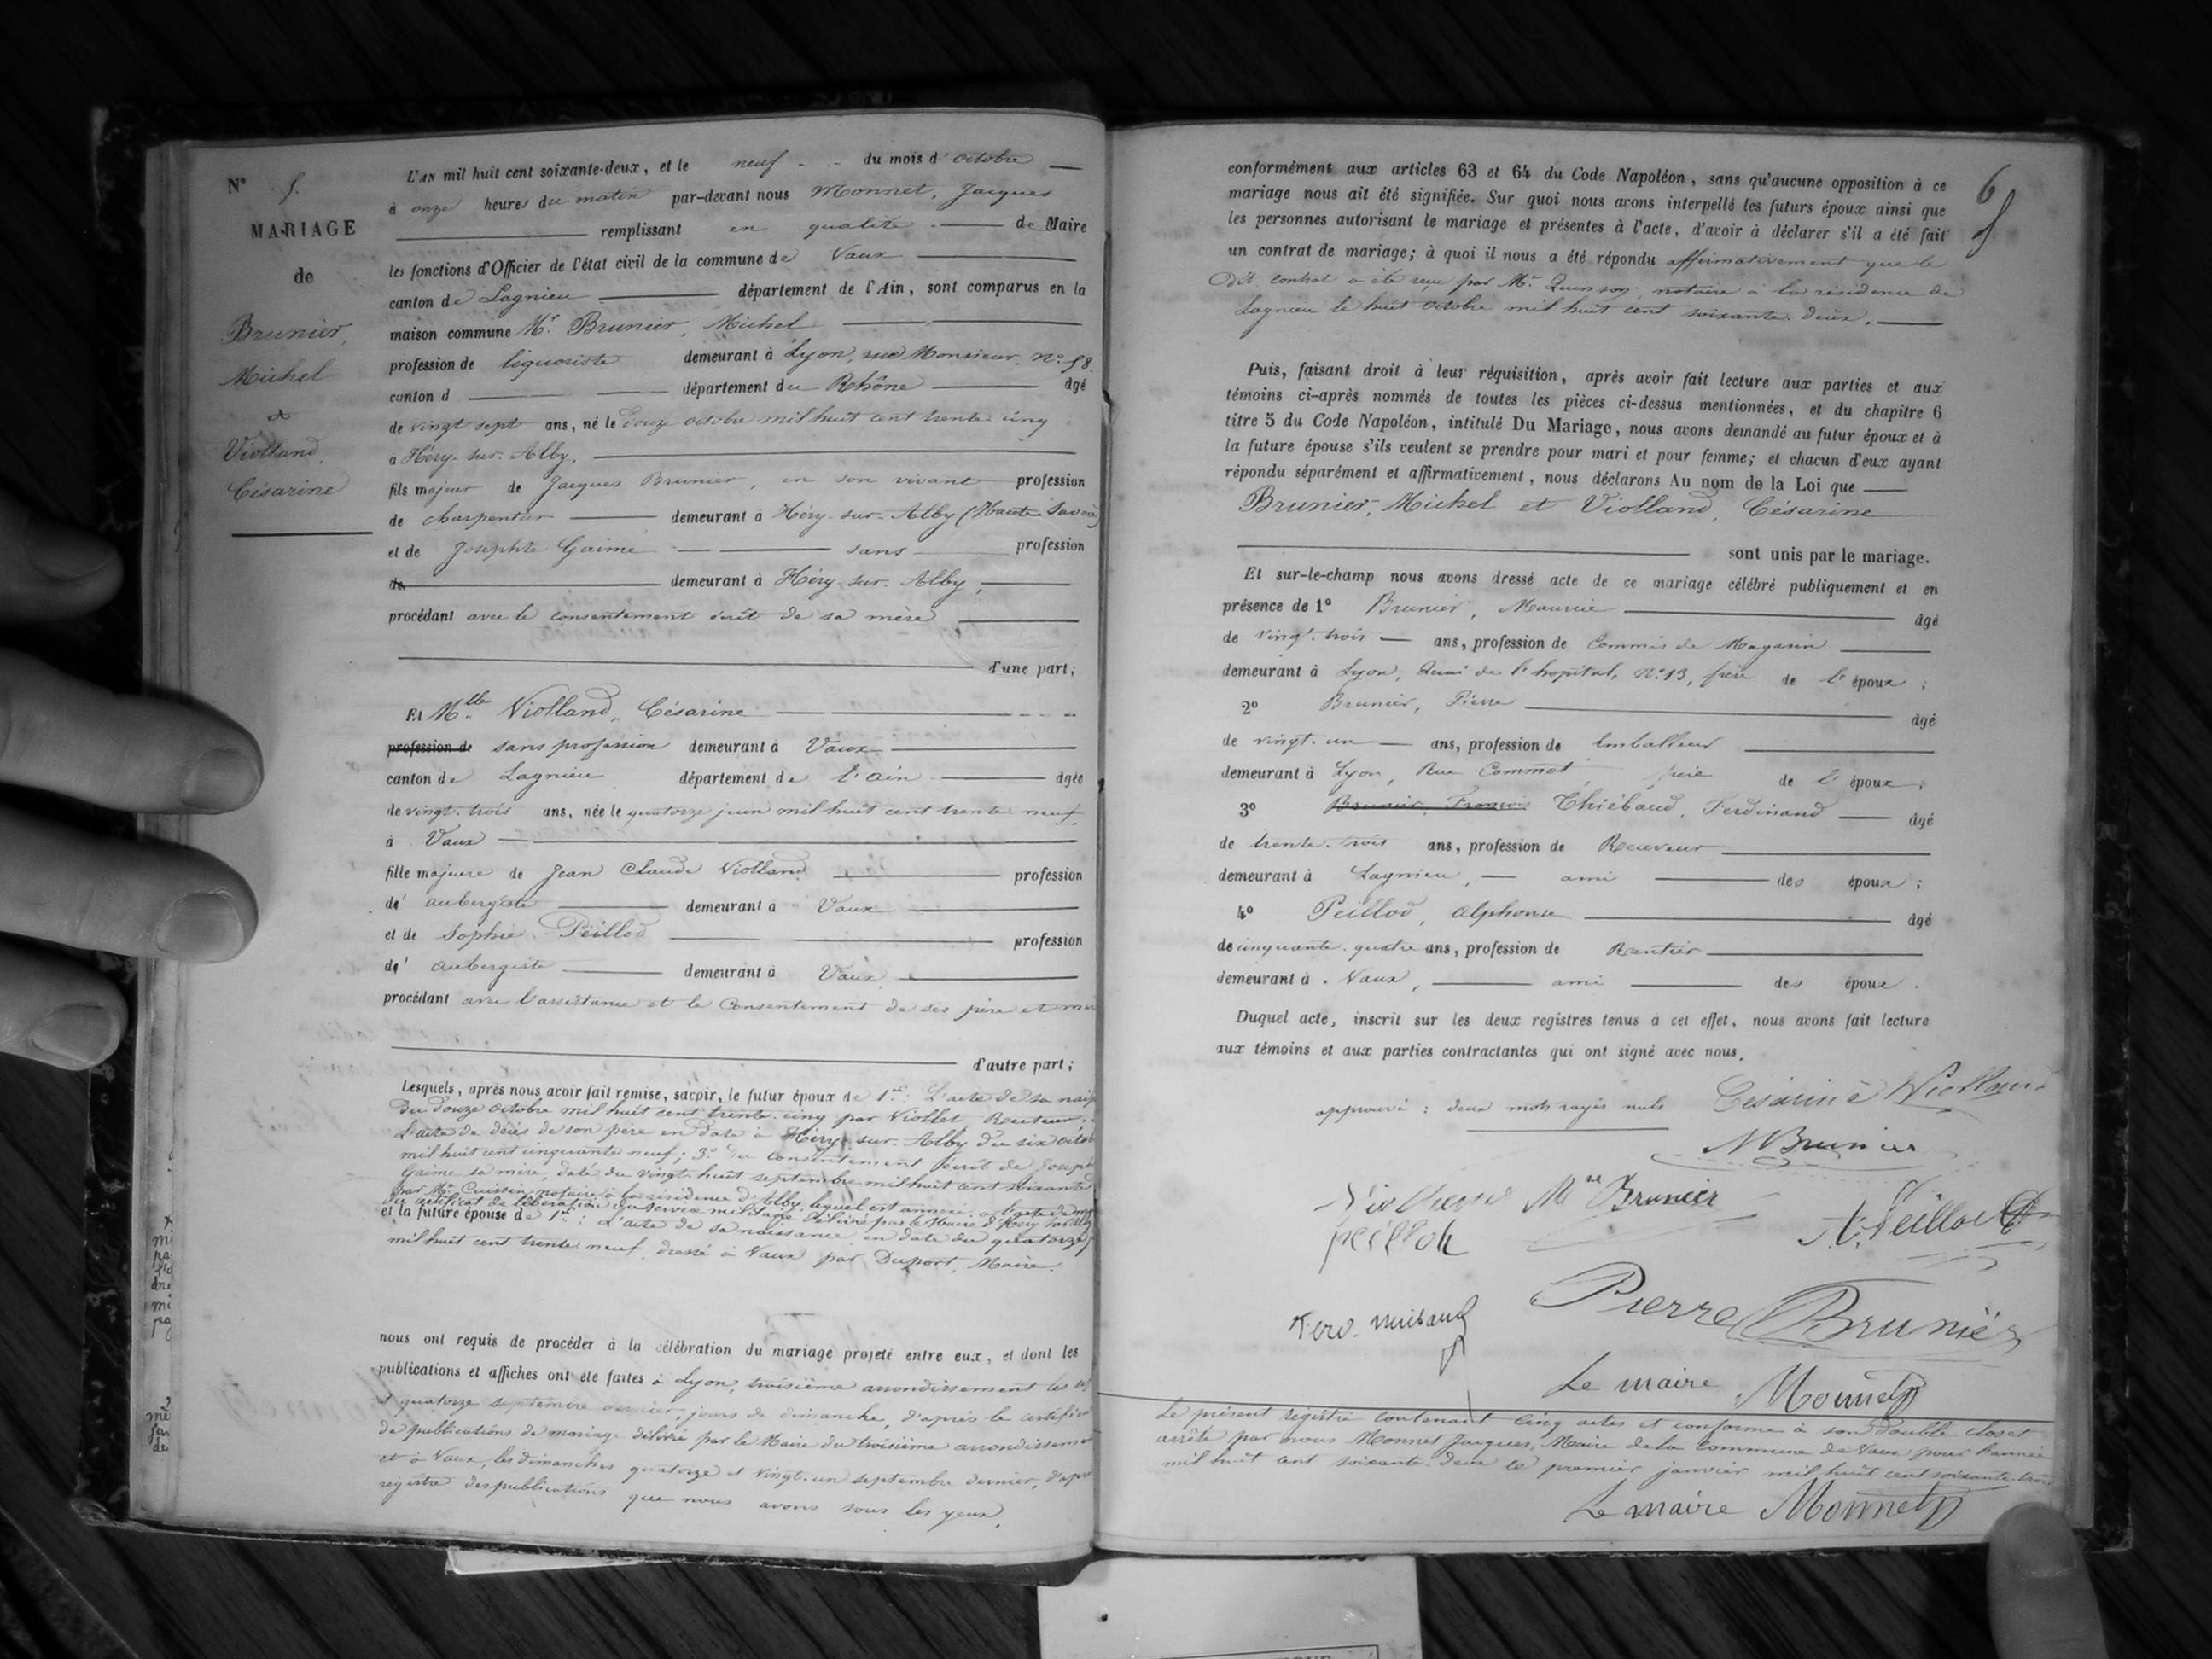 N° 5.
MARIAGE
de
Brunier,
Michel
&
Violland,
Césarine
L'AN mil huit cent soixante-deux, et le neuf du mois d'octobre
à onze heures du matin par-devant nous Monnet, Jacques
remplissant en qualité de Maire
les fonctions d'Officier de l'état civil de la commune de Vaux
canton de Lagnieu département de l'Ain, sont comparus en la
maison commune Mr. Brunier, Michel
profession de liquoriste demeurant à Lyon, rue Monsieur, n° 58.
canton d département du Rhône âgé
de vingt-sept ans, né le douze octobre mil huit cent trente cinq
à Héry-sur-Alby,
fils majeur de Jacques Brunier, en son vivant profession
de charpentier demeurant à Héry-sur-Alby (Haute Savoie)
et de Josephte Gaime sans profession
de demeurant à Héry-sur-Alby,
procédant avec le consentement écrit de sa mère
d'une part;
Et Mlle Violland, Césarine
profession de sans profession demeurant à Vaux
canton de Lagnieu département de l'Ain âgée
de vingt-trois ans, née le quatorze juin mil huit cent trente neuf,
à Vaux
fille majeure de Jean Claude Violland profession
de aubergiste demeurant à Vaux
et de Sophie Peillod profession
de aubergiste demeurant à Vaux
procédant avec l'assistance et le consentement de ses père et
d'autre part;
Lesquels, après nous avoir fait remise, savoir, le futur époux de 1° : L'acte de sa
du douze octobre mil huit cent trente-cinq par Viollet, Recteur;
L'acte de décès de son père en date à Héry-sur-Alby du six
mil huit cent cinquante neuf; 3° du consentement écrit de
Gaime sa mère, daté du vingt-huit septembre mil huit cent soixante
par Me Cuissin, notaire à la résidence d'Alby, lequel est annexé
du certificat de libération du service militaire délivré par le Maire d'Héry sur Alby
et la future épouse de 1° : L'acte de sa naissance en date du quatorze
mil huit cent trente neuf, dressé à Vaux par Duport, Maire.
nous ont requis de procéder à la célébration du mariage projeté entre eux, et dont les
publications et affiches ont été faites à Lyon, troisième arrondissement les
et quatorze septembre dernier, jours de dimanche, d'après le
de publications de mariage délivré par le Maire du troisième
et à Vaux, les dimanches quatorze et vingt-un septembre dernier,
registre des publications que nous avons sous les yeux,
6
conformément aux articles 63 et 64 du Code Napoléon, sans qu'aucune opposition à ce
mariage nous ait été signifiée. Sur quoi nous avons interpellé les futurs époux ainsi que
les personnes autorisant le mariage et présentes à l'acte, d'avoir à déclarer s'il a été fait
un contrat de mariage; à quoi il nous a été répondu affirmativement que le
dit contrat a été reçu par Me. Quinson, notaire à la résidence de
Lagnieu le huit octobre mil huit cent soixante-deux.
Puis, faisant droit à leur réquisition, après avoir fait lecture aux parties et aux
témoins ci-après nommés de toutes les pièces ci-dessus mentionnées, et du chapitre 6
titre 5 du Code Napoléon, intitulé Du Mariage, nous avons demandé au futur époux et à
la future épouse s'ils veulent se prendre pour mari et pour femme; et chacun d'eux ayant
répondu séparément et affirmativement, nous déclarons Au nom de la Loi que
Brunier, Michel et Violland, Césarine
sont unis par le mariage.
Et sur-le-champ nous avons dressé acte de ce mariage célébré publiquement et en
présence de 1° Brunier, Maurice âgé
de vingt-trois ans, profession de Commis de Magasin
demeurant à Lyon, Quai de l'hopital, N° 13, frère de l'époux;
2° Brunier, Pierre âgé
de vingt-un ans, profession de Emballeur
demeurant à Lyon, Rue frère de l'époux;
3° Brunier, François Thiébaud, Ferdinand âgé
de trente-trois ans, profession de Receveur
demeurant à Lagnieu, ami des époux;
4° Peillod, Alphonse âgé
de cinquante-quatre ans, profession de Rentier
demeurant à Vaux, ami des époux.
Duquel acte, inscrit sur les deux registres tenus à cet effet, nous avons fait lecture
aux témoins et aux parties contractantes qui ont signé avec nous.
approuvé : deux mots rayés nuls Césarine Violland
MBrunier
Violland Mce Brunier
peillod A. Peillod
Pierre Brunier
Le maire Monnet
Le présent registre contenant cinq actes et conforme à son double clos et
arrêté par nous Monnet Jacques, Maire de la commune de Vaux pour l'année
mil huit cent soixante-deux le premier janvier mil huit cent soixante-trois
Le maire Monnet